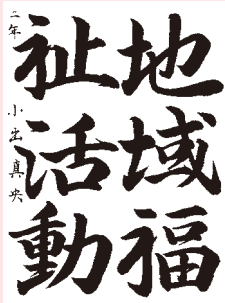 地域福
祉活動
二年 小出真央